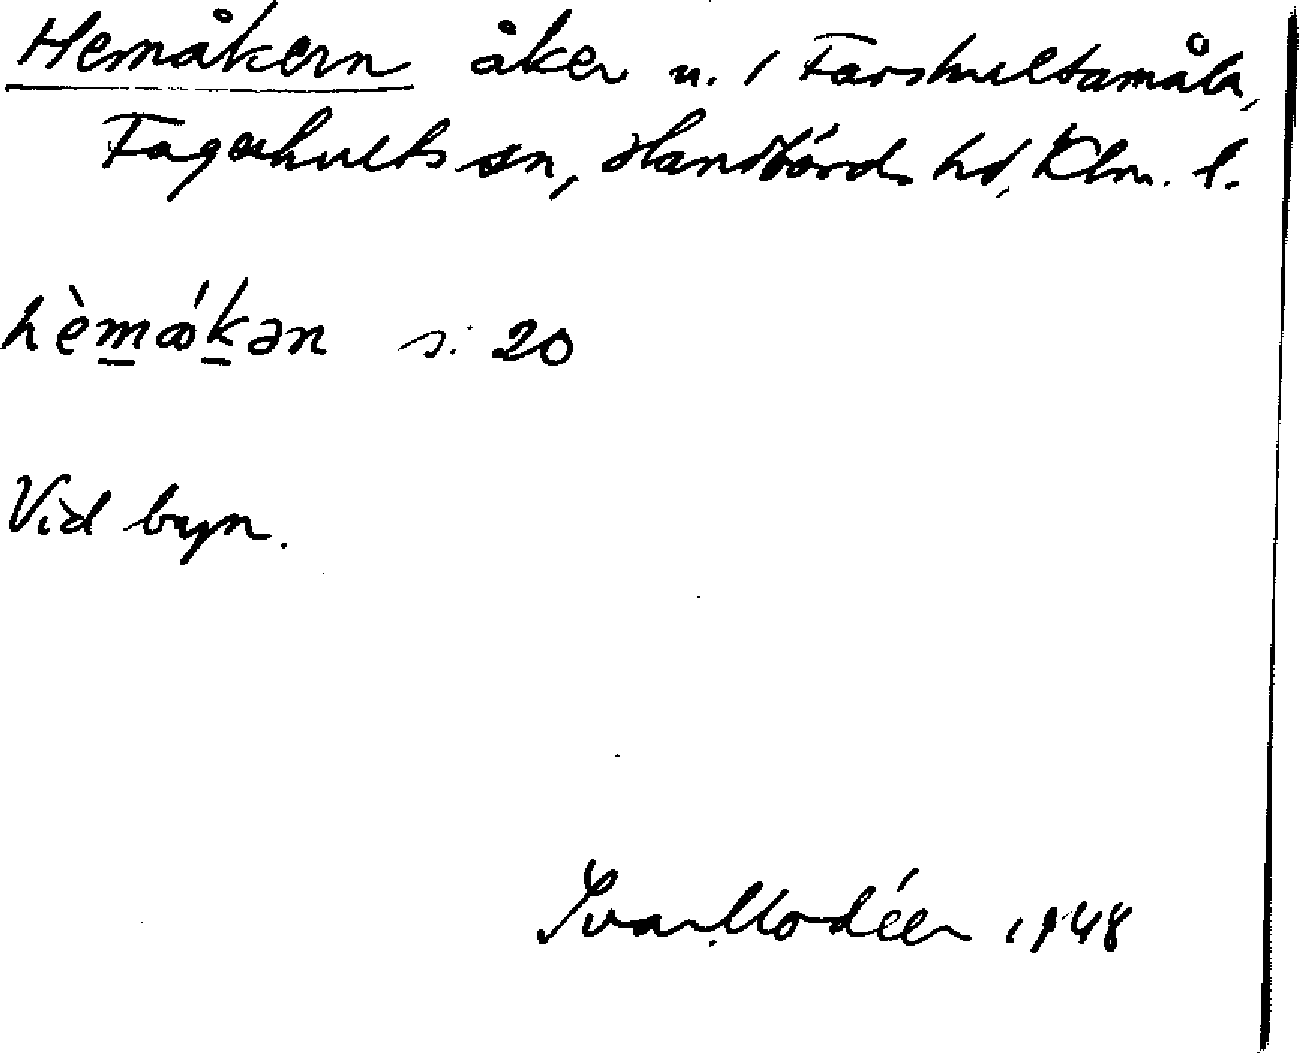 Hemåkern åker n. 1 Farshultamåla,
Fagerhults sn, Handbörds hd, Klm. l.
hèma̋kən s. 20
Vid byn.
Ivar Modéer 1948